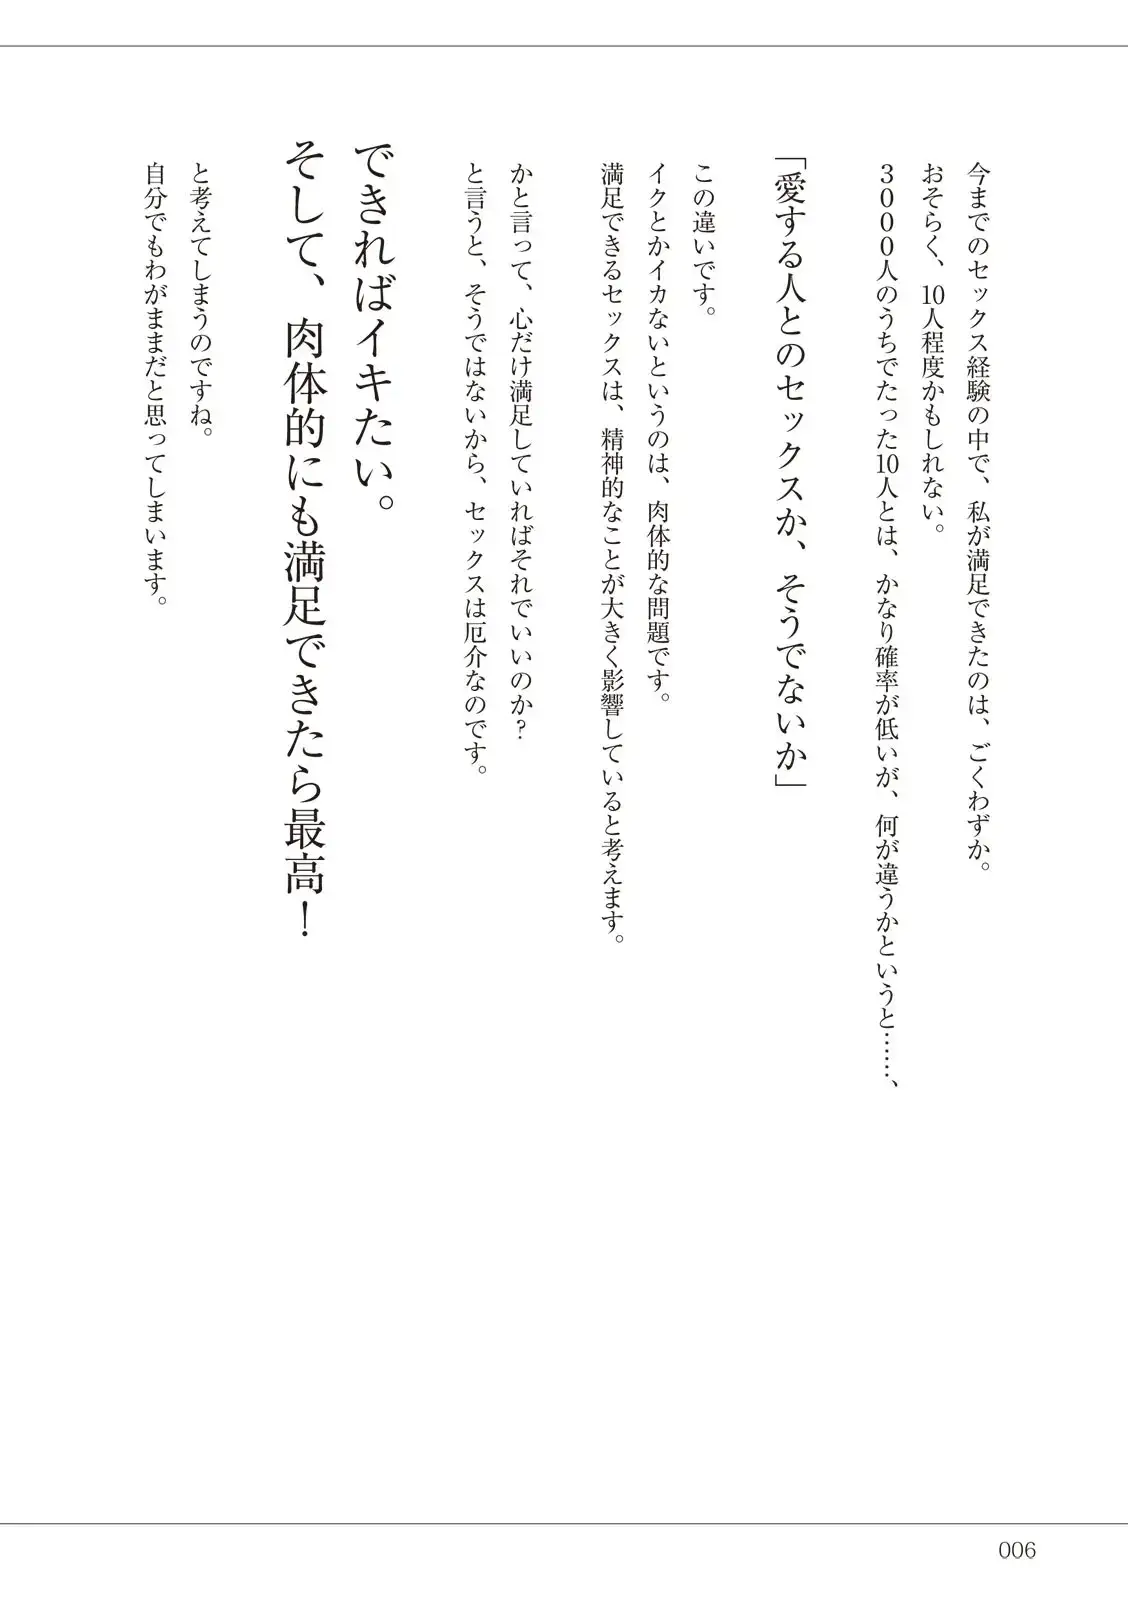 今までのセックス経験の中で、私が満足できたのは、ごくわずか。
おそらく、10人程度かもしれない。
3000人のうちでたった10人とは、かなり確率が低いが、何が違うかというと……、
「愛する人とのセックスか、そうでないか」
この違いです。
イクとかイカないというのは、肉体的な問題です。
満足できるセックスは、精神的なことが大きく影響していると考えます。
かと言って、心だけ満足していればそれでいいのか？
と言うと、そうではないから、セックスは厄介なのです。
できればイキたい。
そして、肉体的にも満足できたら最高！
と考えてしまうのですね。
自分でもわがままだと思ってしまいます。
006